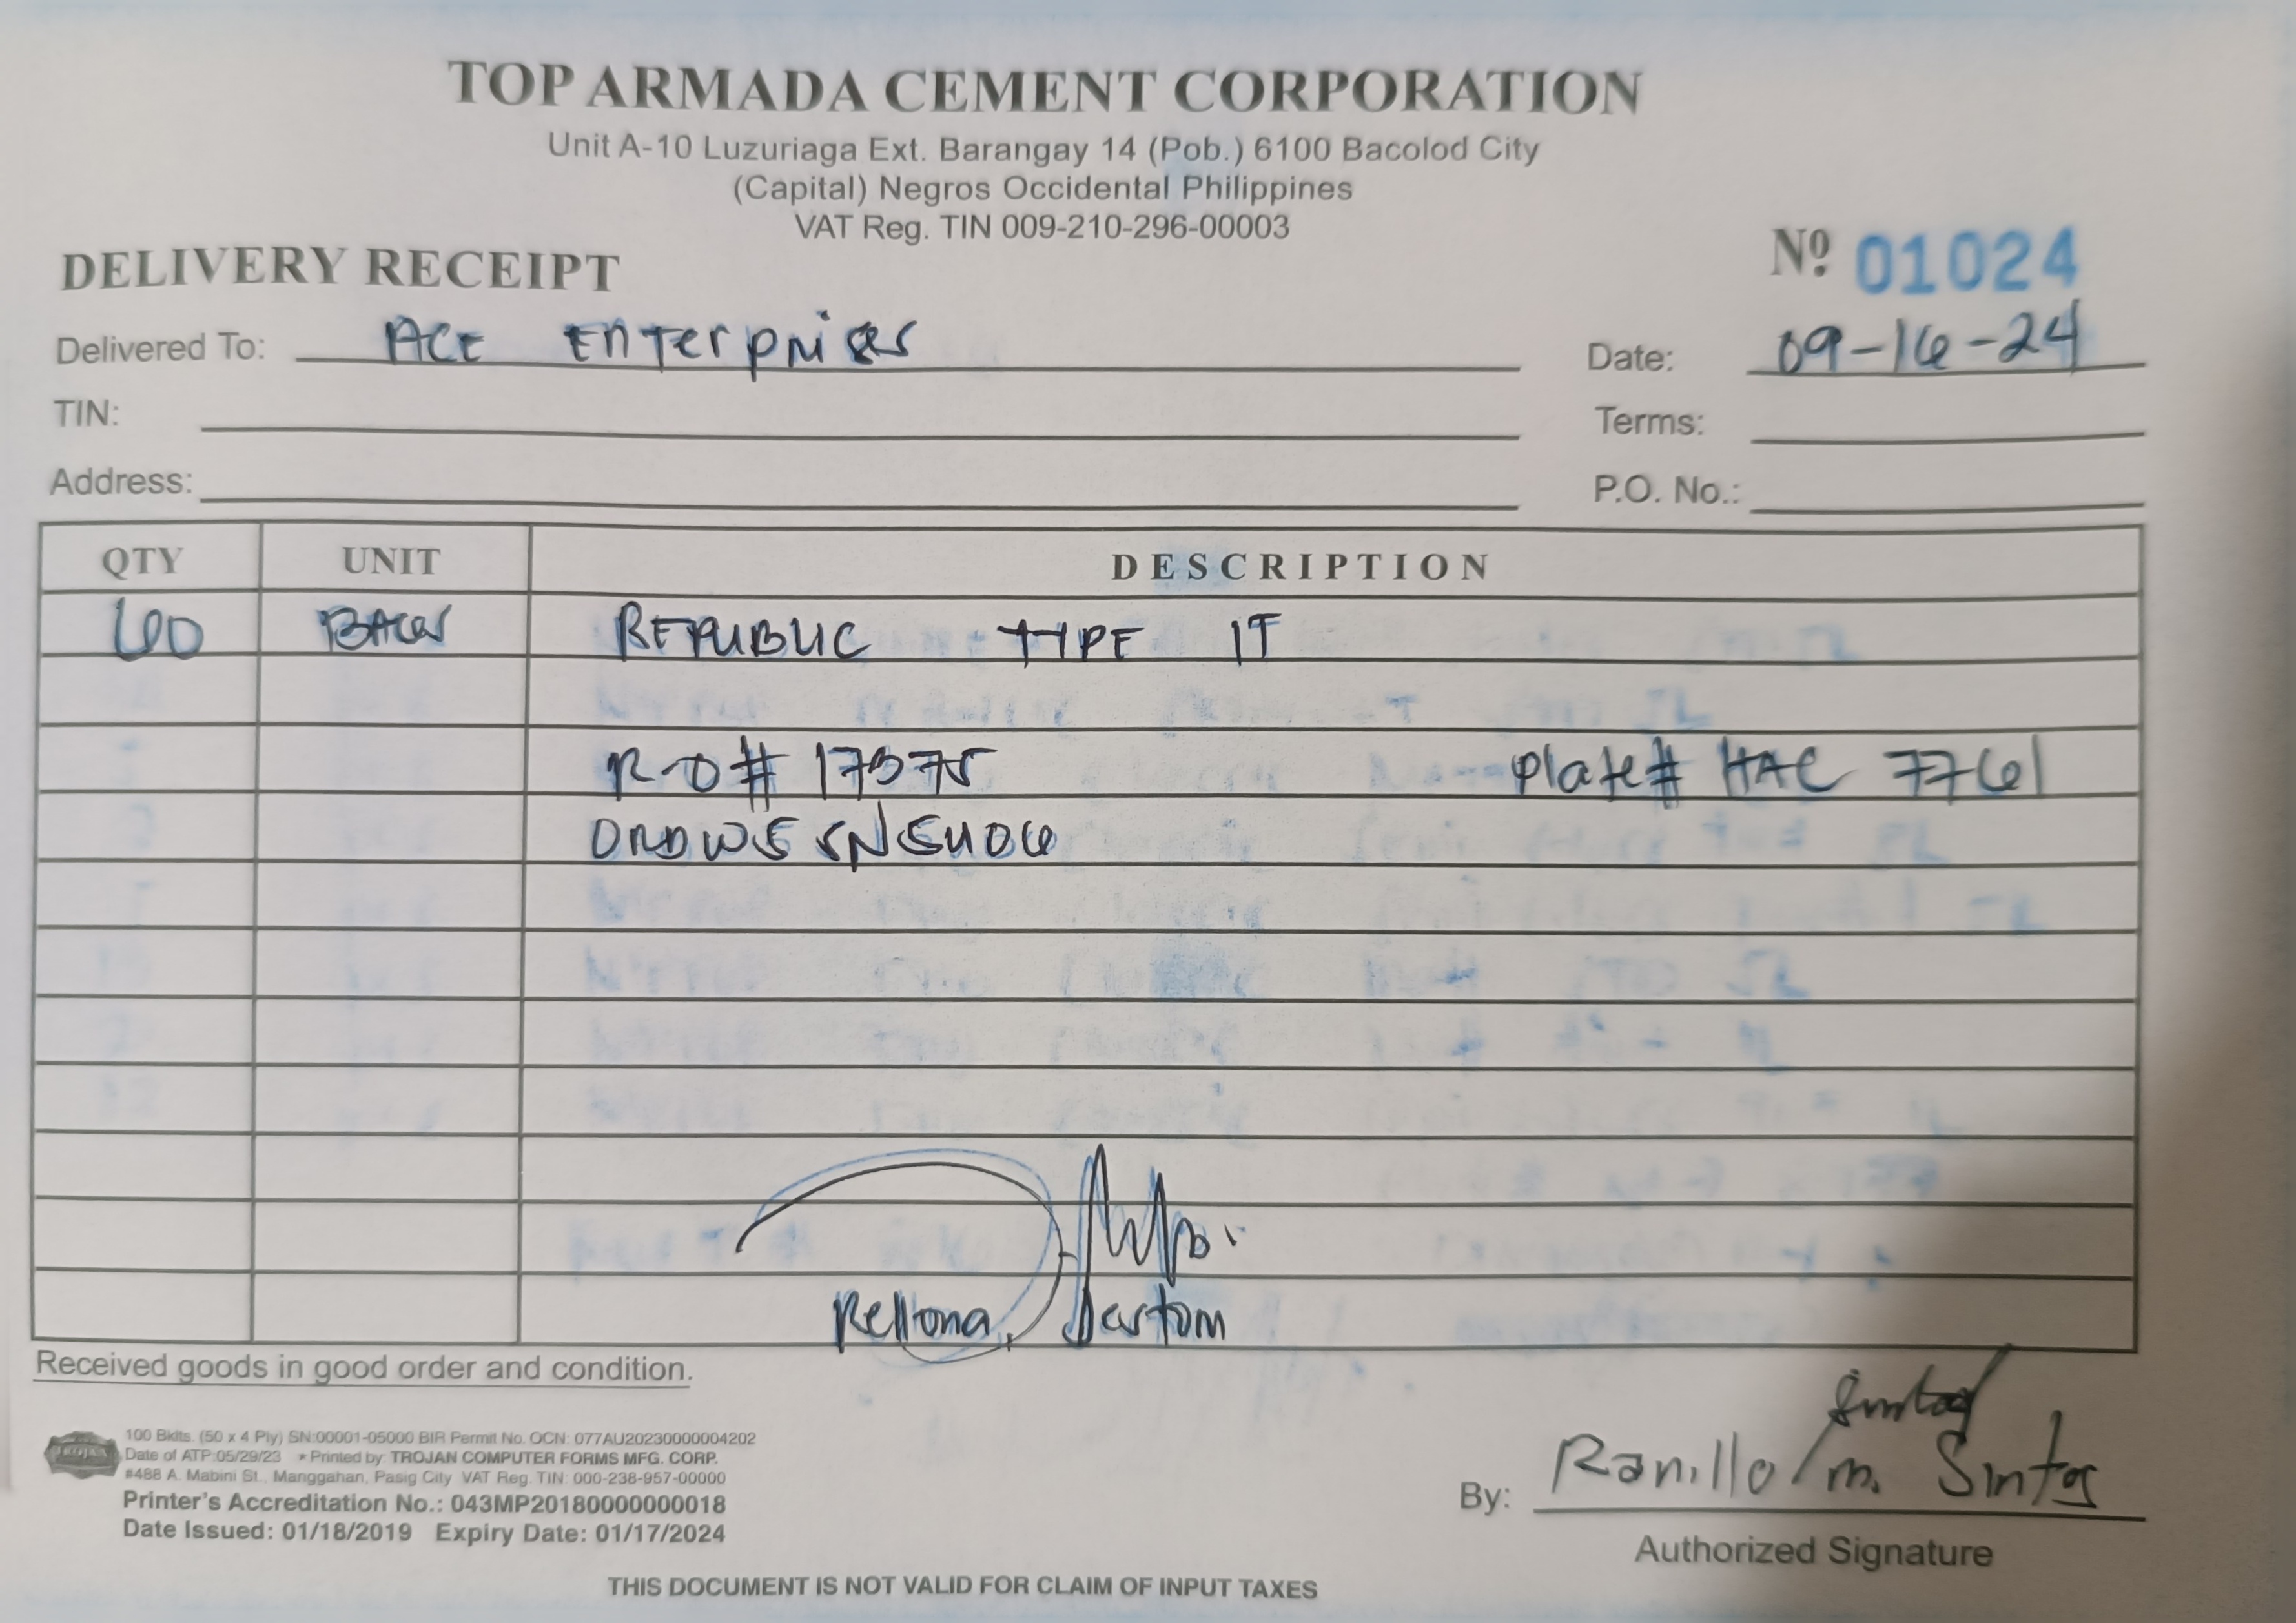 TOP ARMADA CEMENT CORPORATION
Unit A-10 Luzuriaga Ext. Barangay 14 (Pob.) 6100 Bacolod City
(Capital) Negros Occidental Philippines
VAT Reg. TIN 009-210-296-00003
DELIVERY RECEIPT
Nº 01024
Delivered To: ACE Enterprises
Date: 09-16-24
TIN:
Terms:
Address:
P.O. No.:
QTY UNIT DESCRIPTION
BAGS REPUBLIC TYPE 1T
R-O# 17375 Plate# HAC 7761
Rellona, Jastom
Received goods in good order and condition.
TROJAN
100 Bklts. (50 x 4 Ply) SN:00001-05000 BIR Permit No. OCN: 077AU20230000004202
Date of ATP:05/29/23 * Printed by: TROJAN COMPUTER FORMS MFG. CORP.
#488 A. Mabini St., Manggahan, Pasig City VAT Reg. TIN: 000-238-957-00000
Printer's Accreditation No.: 043MP20180000000018
Date Issued: 01/18/2019 Expiry Date: 01/17/2024
By: Ranillo m. Sintos
Authorized Signature
THIS DOCUMENT IS NOT VALID FOR CLAIM OF INPUT TAXES